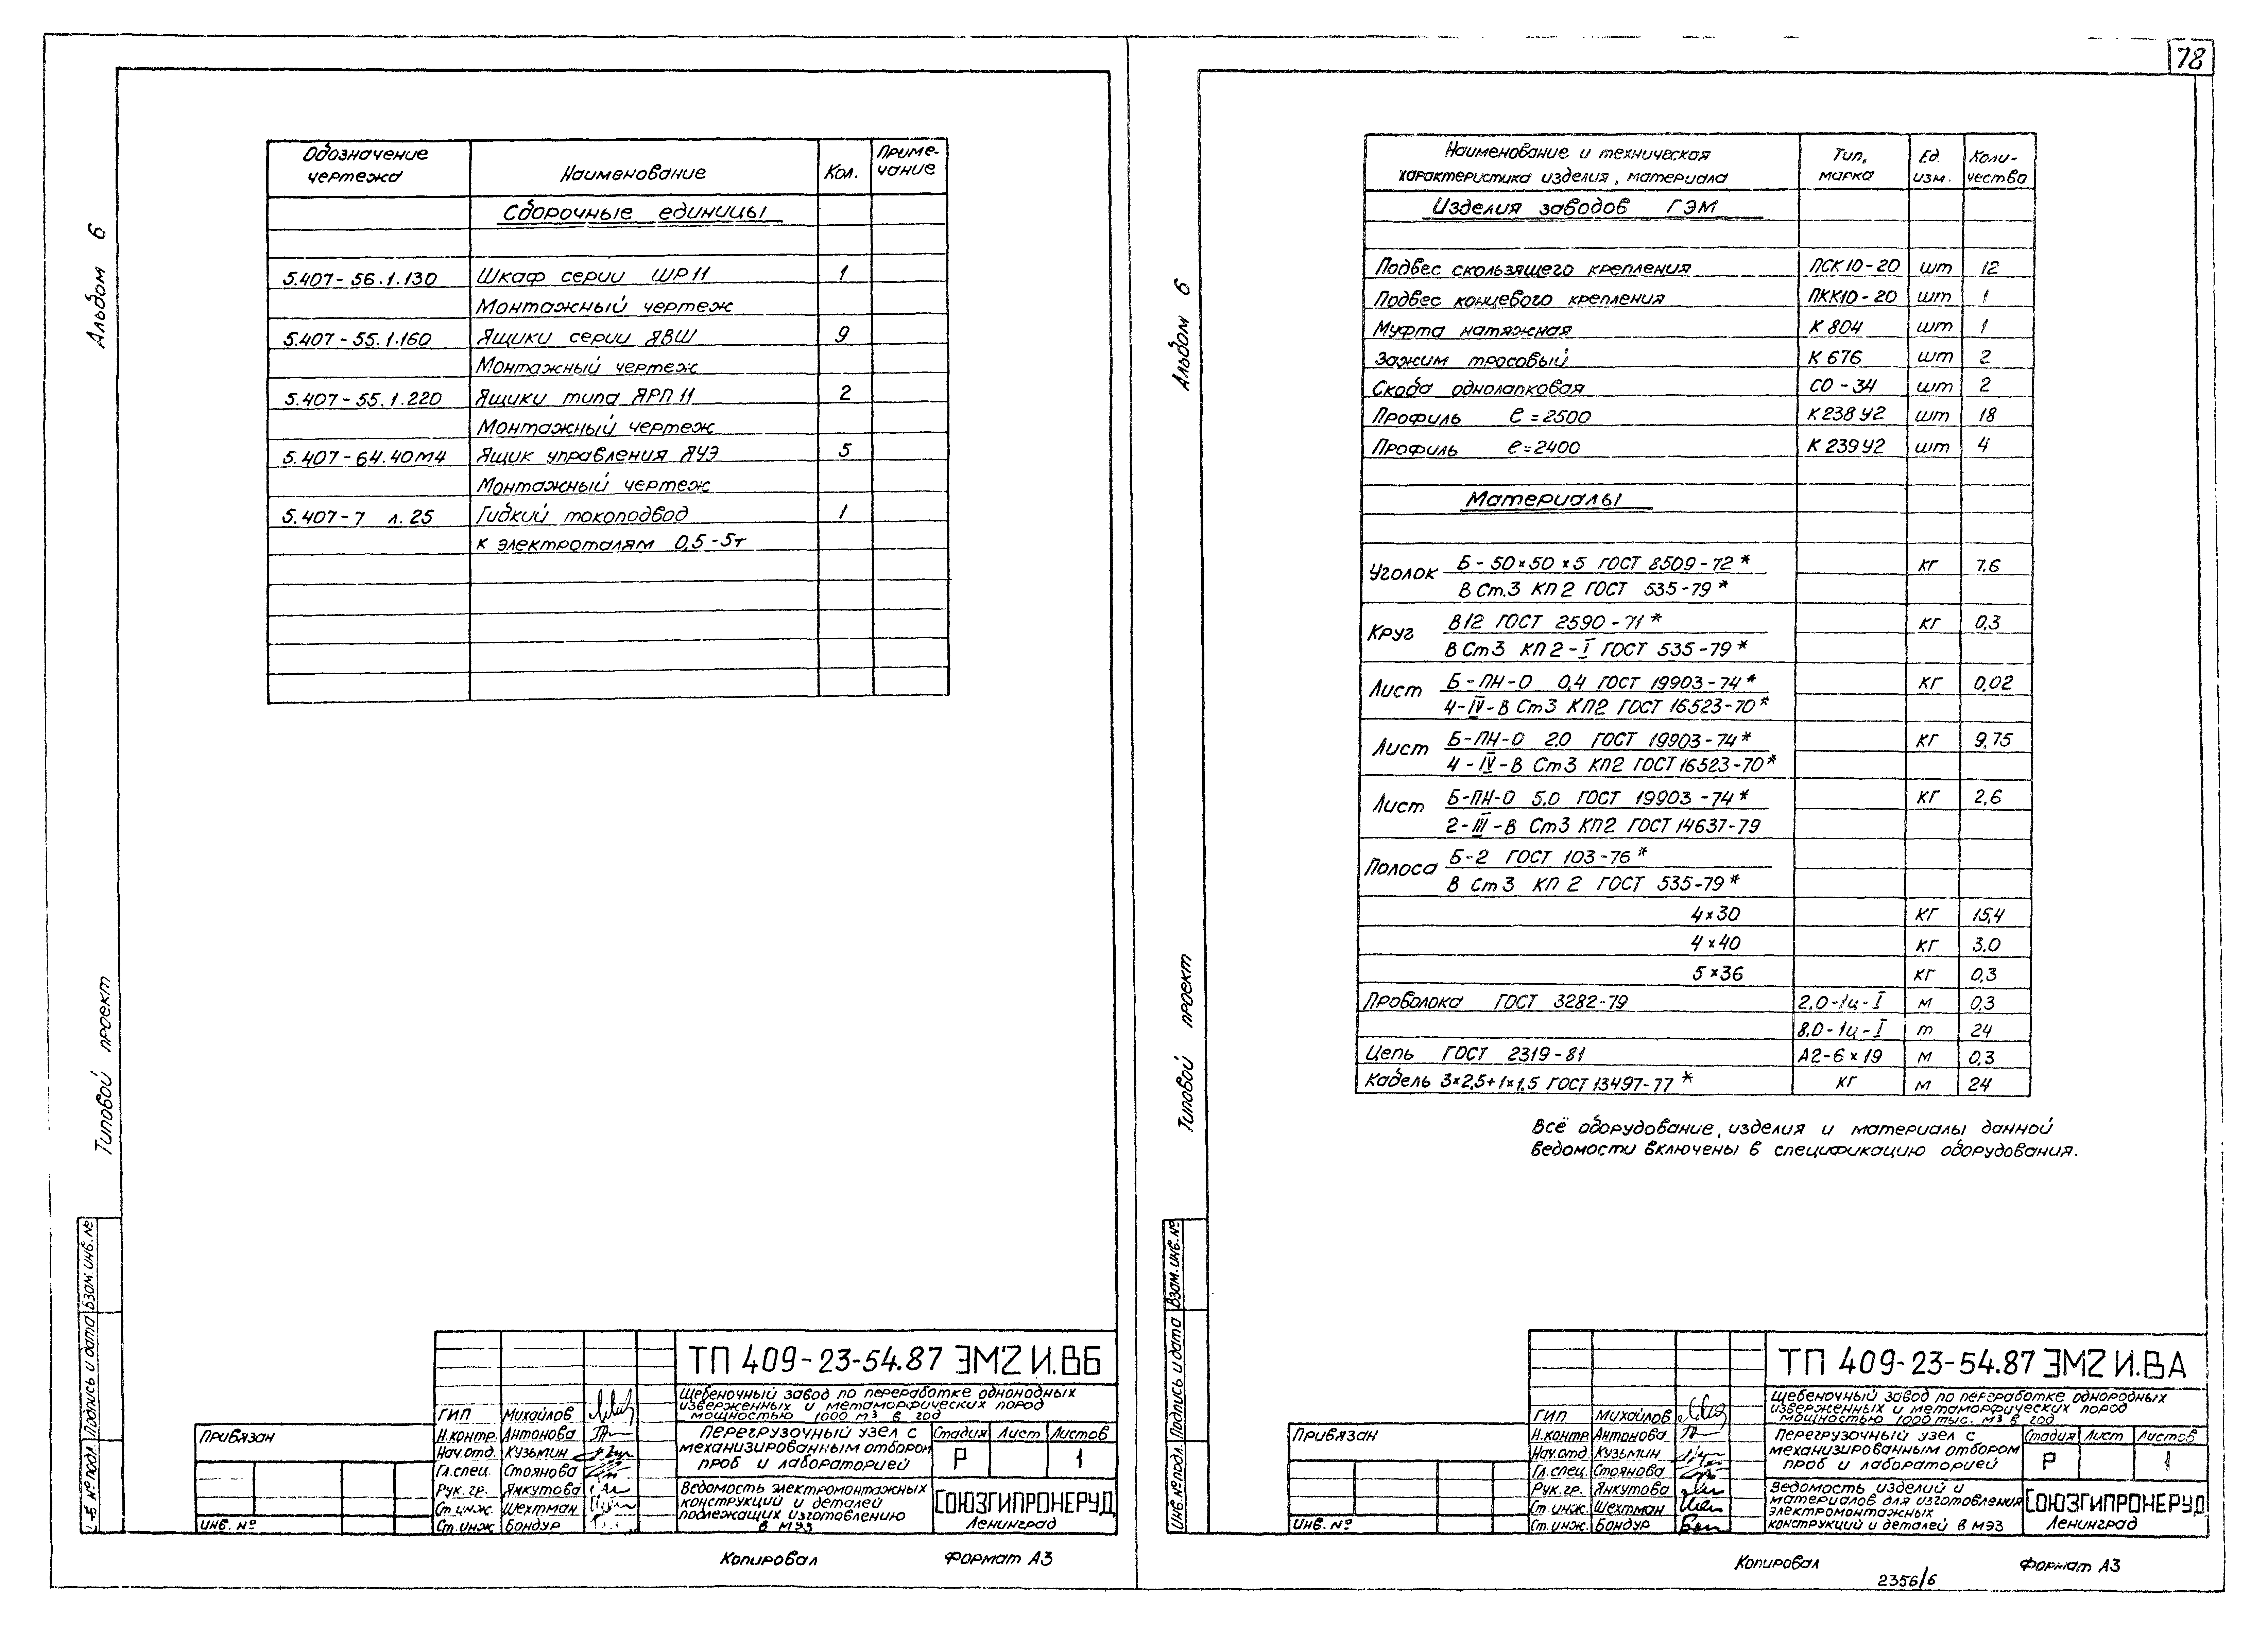 78
Альбом 6
Типовой проект
Обозначение чертежа Наименование Кол. Примечание
Сборочные единицы
5.407-56.1.130 Шкаф серии ШР11 1
Монтажный чертеж
5.407-55.1.160 Ящики серии ЯВШ 9
Монтажный чертеж
5.407-55.1.220 Ящики типа ЯРП11 2
Монтажный чертеж
5.407-64.40М4 Ящик управления ЯУЭ 5
Монтажный чертеж
5.407-7 л.25 Гибкий токоподвод 1
к электроталям 0,5-5т
Взам. инв. №
Подпись и дата
№ подл.
Привязан
Инв. №
ГИП Михайлов
Н.контр. Антонова
Нач.отд. Кузьмин
Гл.спец. Стоянова
Рук. гр. Янкутова
Ст.инж. Шехтман
Ст.инж Бондур
ТП 409-23-54.87 ЭМ2И.ВБ
Щебеночный завод по переработке однонодных
изверженных и метаморфических пород
мощностью 1000 м3 в год
Перегрузочный узел с
механизированным отбором
проб и лабораторией
Стадия Лист Листов
Р 1
Ведомость электромонтажных
конструкций и деталей
подлежащих изготовлению
в МЭЗ
СОЮЗГИПРОНЕРУД
Ленинград
Копировал Формат А3
Альбом 6
Типовой проект
Наименование и техническая характеристика изделия, материала Тип, марка Ед. изм. Количество
Изделия заводов ГЭМ
Подвес скользящего крепления ПСК10-20 шт 12
Подвес концевого крепления ПКК10-20 шт 1
Муфта натяжная К 804 шт 1
Зажим тросовый К 676 шт 2
Скоба однолапковая СО-34 шт 2
Профиль ℓ=2500 К238У2 шт 18
Профиль ℓ=2400 К239У2 шт 4
Материалы
Уголок Б-50×50×5 ГОСТ 8509-72* кг 7.6
В Ст.3 КП2 ГОСТ 535-79*
Круг В12 ГОСТ 2590-71* кг 0,3
В Ст3 КП2-I ГОСТ 535-79*
Лист Б-ПН-О 0,4 ГОСТ 19903-74* кг 0,02
4-IV-В Ст3 КП2 ГОСТ 16523-70*
Лист Б-ПН-О 2.0 ГОСТ 19903-74* кг 9,75
4-IV-В Ст3 КП2 ГОСТ 16523-70*
Лист Б-ПН-О 5,0 ГОСТ 19903-74* кг 2,6
2-III-В Ст3 КП2 ГОСТ 14637-79
Полоса Б-2 ГОСТ 103-76*
В Ст3 КП 2 ГОСТ 535-79*
4×30 кг 15,4
4×40 кг 3.0
5×36 кг 0,3
Проволока ГОСТ 3282-79 2,0-1ц-I м 0,3
8.0-1ц-I т 24
Цепь ГОСТ 2319-81 А2-6×19 м 0,3
Кабель 3×2,5+1×1,5 ГОСТ 13497-77* КГ м 24
Всё оборудование, изделия и материалы данной
ведомости включены в спецификацию оборудования.
Взам. инв. №
Подпись и дата
Инв. № подл.
Привязан
Инв. №
ГИП Михайлов
Н.контр Антонова
Нач.отд Кузьмин
Гл.спец. Стоянова
Рук.гр. Янкутова
Ст.инж. Шехтман
Ст.инж. Бондур
ТП 409-23-54.87 ЭМ2И.ВА
Щебеночный завод по переработке однородных
изверженных и метаморфических пород
мощностью 1000 тыс. м3 в год
Перегрузочный узел с
механизированным отбором
проб и лабораторией
Стадия Лист Листов
Р 1
Ведомость изделий и
материалов для изготовления
электромонтажных
конструкций и деталей в МЭЗ
СОЮЗГИПРОНЕРУД
Ленинград
Копировал Формат А3
2356/6